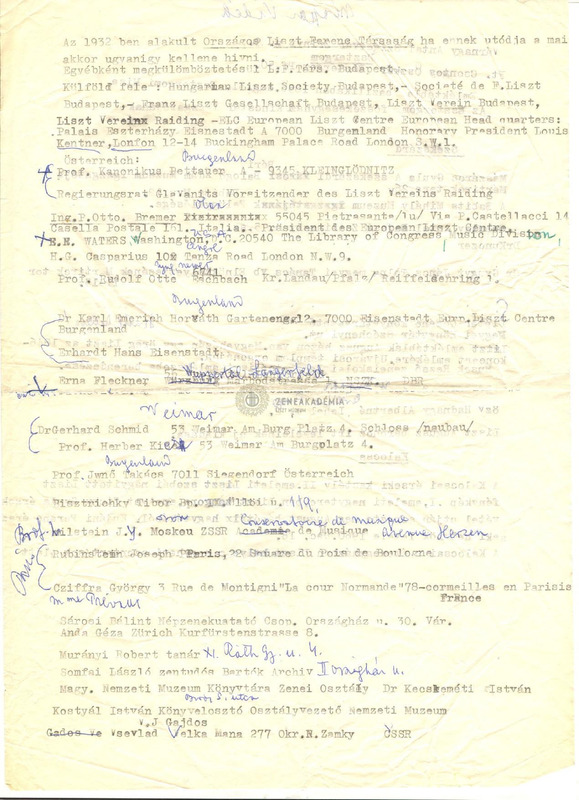 Az 1932 ben alakult Országos Liszt Ferenc Társaság ha ennek utódja a mai
akkor ugyanigy kellene hivni.
Egyébként megkülömböztetésül L.F.Társ. Budapest.
Külföld fele: Hungarian Liszt Society Budapest,- Societé de F.Liszt
Budapest,- Franz Liszt Gesellschaft Budapest, Liszt Verein Budapest,
Liszt Vereinx Raiding -ELC European Liszt Centre European Head quarters:
Palais Eszterházy Eisnestadt A 7000 Burgenland Honorary President Louis
Kentner, Lonfon 12-14 Buckingham Palace Road London S.W.1.
Österreich:
Burgenland
Prof. Kanonikus Pettauer A - 9345 KLEINGLÖDNITZ
Regierungsrat Glavanits Vorsitzender des Liszt Vereins Raiding
Ing.P.Otto. Bremer 55045 Pietrasanta/lu/ Via P.Castellacci 14
Casella Postale 161. Italia. Präsident des European Liszt Centre,
E.N. WATERS Washington, D.C.20540 The Library of Congress Music Division,
H.G. Casparius 10 Tanza Road London N.W.9.
6741
Prof. Rudolf Otto Kr.Landau/Pfalz/ Reiffeidenring 1.
Burgenland
Dr Karl Emerich Horváth Gartenengl2. 7000 Eisenstedt Eurn.Liszt Centre
Burgenland
Erhardt Hans Eisenstadt.
Wuppertal Langerfeld
Erna Fleckner DBR
ZENEAKADÉMIA
LISZT MÚZEUM
Weimar
Dr Gerhard Schmid 53 Weimar Am Burg Platz 4. Schloss /neubau/
Prof. Herber 53 Weimar Am Burgplatz 4.
Burgenland
Prof. Jwnő Takács 7011 Siegendorf Österreich
Bisztrichky Tibor Bp. Üllői u. 1/9.
Conservatoire de musique
Milstein J.Y. Moskou ZSSR de Musique Avenue Herzen
Rubinstein Joseph Paris, 22 Sauare du Pois de Boulogne
Cziffra György 3 Rue de Montigni"La cour Normande"78-cormeilles en Parisis
France
Sárosi Bálint Népzenekuatató Cson. Országház u. 30. Vár.
Anda Géza Zürich Kurfürstenstrasse 8.
Murányi Robert tanár XI. Ráth Gy. u. 4
Somfai László zentudós Bartók Archiv Országház u.
Magy. Nemzeti Muzeum Könyvtára Zenei Osztály Dr Kecskeméti István
Kostyál István Könyvelosztó Osztályvezető Nemzeti Muzeum
V.J Gajdos
Gados Ve Vsevlad Velka Mana 277 Okr.N.Zamky ČSSR